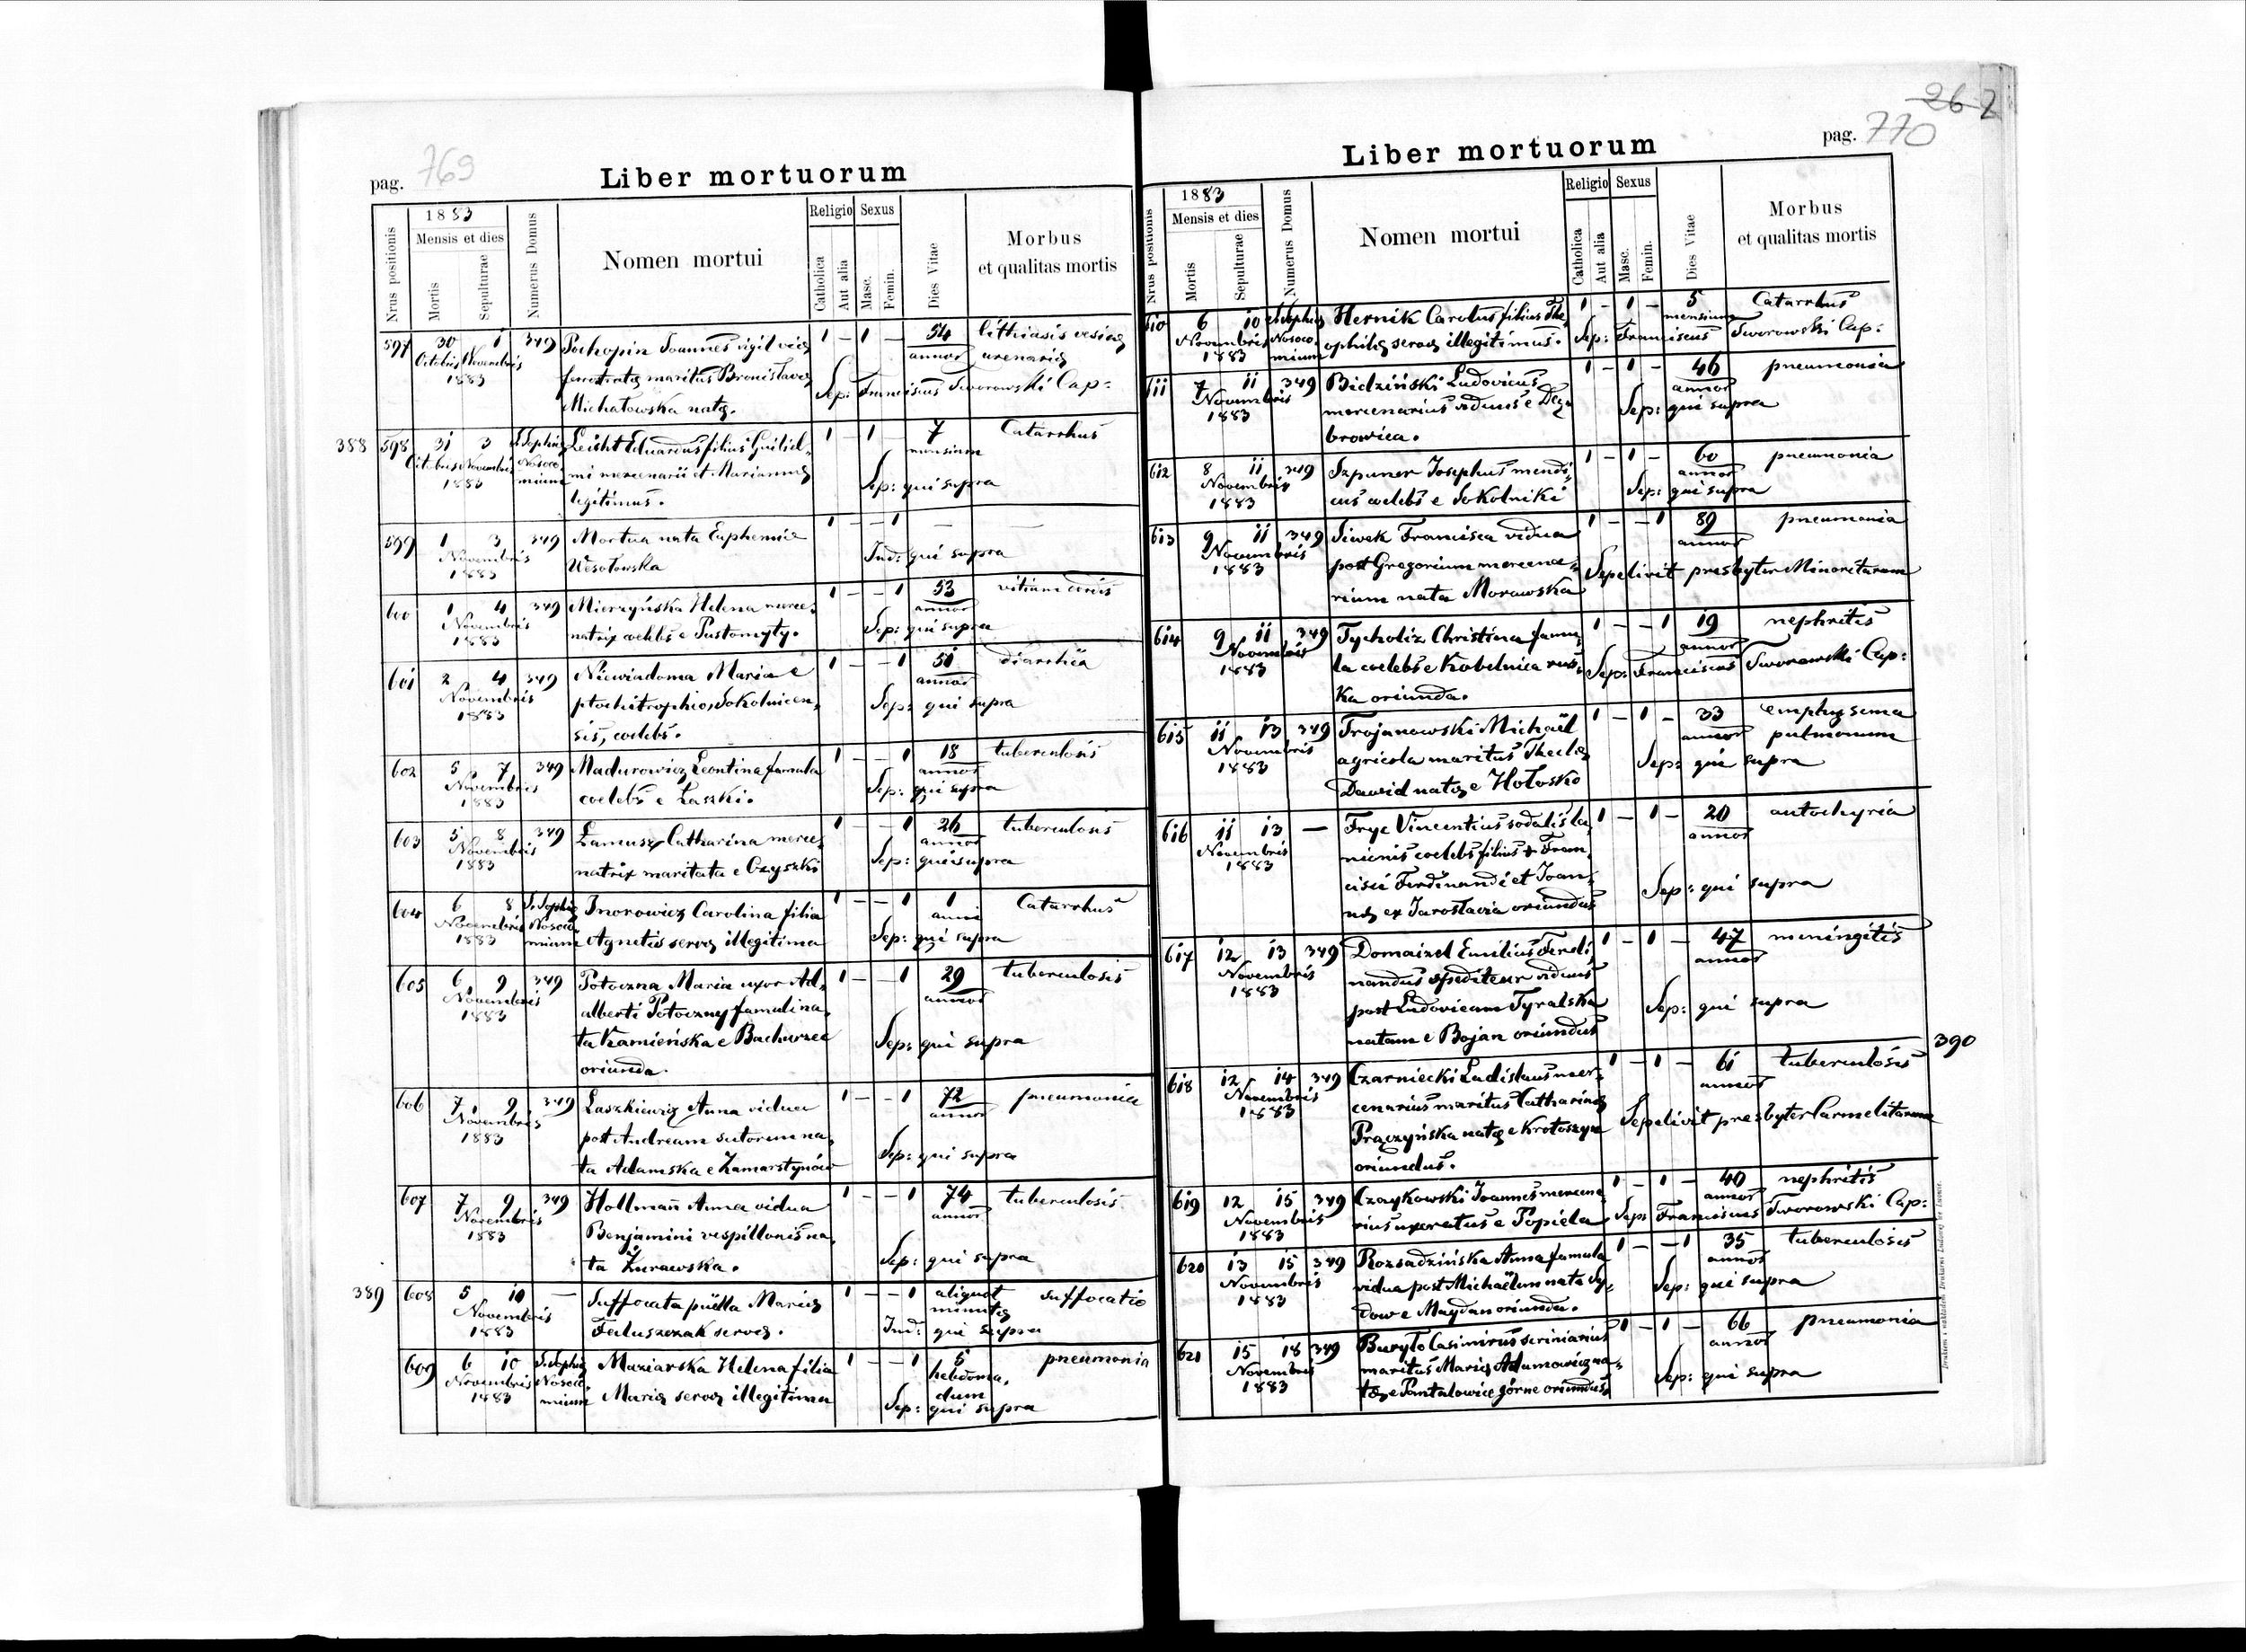 pag. 769
Liber mortuorum
Nrus positionis
1883
Mensis et dies
Mortis
Sepulturae
Numerus Domus
Nomen mortui
Religio
Catholica
Aut alia
Sexus
Masc.
Femin.
Dies Vitae
Morbus
et qualitas mortis
597 30 1 349 Pochopin Joannes vigil vię 1 - 1 - 54 lithiasis vesicę
Octobris Novembris ferrstratę maritus Bronislavę annor urenarię
1883 Michałowska natę. Sep: Franciscus Tworowski Cap:
388 598 31 3 S. Sophię Leicht Eduardus filius Guiliel- 1 - 1 7 Catarrhus
Octobris Novembris Nosoco mi mercenarii et Mariannę mensium
1883 mium legitimus. Sep: qui supra
599 1 3 349 Mortua nata Euphemia 1 - - 1 — —
Novembris Wesołowska Ind: qui supra
1883
600 1 4 349 Mierzyńska Helena merce- 1 - - 1 53 vitium cordis
Novembris natrix coelebs e Pustomyty. annor
1883 Sep: qui supra
601 2 4 349 Niewiadoma Maria e 1 - - 1 51 diarrhëa
Novembris ptochitrophio, Sokolnicen- annor
1883 sis, coelebs. Sep: qui supra
602 5 7 349 Madurowicz Leontina famula 1 - - 1 18 tuberculosis
Novembris coelebs e Laszki. annor
1883 Sep: qui supra
603 5 8 349 Łamusz Catharina merce- 1 - - 1 26 tuberculosis
Novembris natrix maritata e Czyszki annor
1883 Sep: qui supra
604 6 8 S. Sophię Inorowicz Carolina filia 1 - - 1 1 Catarrhus
Novembris Nosoco Agnetis servę illegitima anni
1883 mium Sep: qui supra
605 6 9 349 Potoczna Maria uxor Ad- 1 - - 1 29 tuberculosis
Novembris alberti Potoczny famuli na- annor
1883 ta Kamieńska e Bachurzec
oriunda. Sep: qui supra
606 7 9 349 Laszkiewicz Anna vidua 1 - - 1 72 pneumonia
Novembris post Andream sutorem na- annor
1883 ta Adamska e Zamarstynów Sep: qui supra
607 7 9 349 Hollmañ Anna vidua 1 - - 1 74 tuberculosis
Novembris Benjamini vespillonis na- annor
1883 ta Żurawska. Sep: qui supra
389 608 5 10 — Suffocata püella Marię 1 - - 1 aliquot suffocatio
Novembris Faluszczak servę. minutę
1883 Ind: qui supra
609 6 10 S. Sophię Maziarska Helena filia 1 - - 1 5 pneumonia
Novembris Nosoco Marię servę illegitima hebdoma-
1883 mium dum
Sep: qui supra
262
pag. 770
Liber mortuorum
Nrus positionis
1883
Mensis et dies
Mortis
Sepulturae
Numerus Domus
Nomen mortui
Religio
Catholica
Aut alia
Sexus
Masc.
Femin.
Dies Vitae
Morbus
et qualitas mortis
610 6 10 S. Sophię Hernik Carolus filius The- 1 - 1 - 5 Catarrhus
Novembris Nosoco ophilę servę illegitimus. mensium
1883 mium Sep: Franciscus Tworowski Cap:
611 7 11 349 Bidziński Ludovicus 1 - 1 - 46 pneumonia
Novembris mercenarius viduus e Dą- annor
1883 browica. Sep: qui supra
612 8 11 349 Szpuner Josephus mendi- 1 - 1 - 60 pneumonia
Novembris cus coelebs e Sokolniki annor
1883 Sep: qui supra
613 9 11 349 Siwek Francisca vidua 1 - - 1 89 pneumonia
Novembris post Gregorium mercena- annor
1883 rium nata Morawska Sepelivit presbyter Minoritarum
614 9 11 349 Tycholiz Christina famu- 1 - - 1 19 nephritis
Novembris la coelebs e Kobelnica rus- annor
1883 ka oriunda. Sep: Franciscus Tworowski Cap:
615 11 13 349 Trojanowski Michaël 1 - 1 - 33 emphysema
Novembris agricola maritus Theclę annor pulmonum
1883 Dawid natę e Hołosko Sep: qui supra
616 11 13 — Fryc Vincentius sodalis la- 1 - 1 - 20 autochyria
Novembris nienis coelebs filius + Fran- annor
1883 cisci Ferdinandi et Joan-
nę ex Jaroslavia oriundus Sep: qui supra
617 12 13 349 Domaizel Emilius Ferdi- 1 - 1 - 47 meningitis
Novembris nandus spediteur viduus annor
1883 post Ludovicam Tyralska
natam e Bojan oriundus Sep: qui supra
390
618 12 14 349 Czarniecki Ladislaus mer- 1 - 1 - 61 tuberculosis
Novembris cenarius maritus Catharinę annor
1883 Prączyńska natę e Krotoszyn Sepelivit presbyter Carmelitarum
oriundus.
619 12 15 349 Czaykowski Joannes mercena 1 - 1 - 40 nephritis
Novembris rius uxoratus e Popiela annor
1883 Sep: Franciscus Tworowski Cap:
620 13 15 349 Rozsadzińska Anna famula 1 - - 1 35 tuberculosis
Novembris vidua post Michaëlem nata Sy- annor
1883 dow e Maydan oriunda. Sep: qui supra
621 15 18 349 Buryło Casimirus scriniarius 1 - 1 - 66 pneumonia
Novembris maritus Marię Adamowicz na- annor
1883 tę e Pantalowice górne oriundus Sep: qui supra